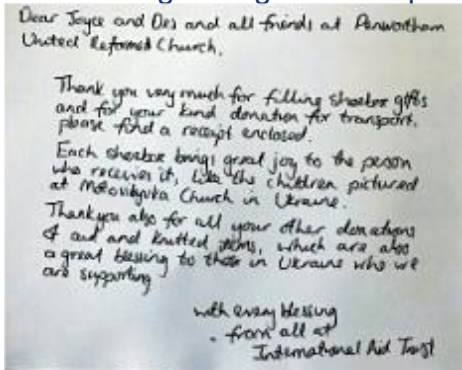 Dear Joyce and Des and all friends at Penwortham
United Reformed Church,
Thank you very much for filling shoebox gifts
and for your kind donation for transport,
please find a receipt enclosed.
Each shoebox brings great joy to the person
who receives it, like the children pictured
at Motovilivka Church in Ukraine.
Thankyou also for all your other donations
of aid and knitted items, which are also
a great blessing to those in Ukraine who we
are supporting
with every blessing
from all at
International Aid Trust